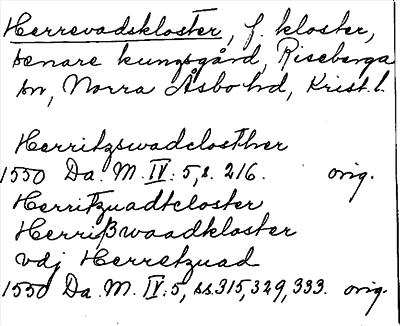 Herrevadskloster, f. kloster,
senare kungsgård, Riseberga
sn, Norra Åsbo hd, Krist. l.
Herritzswadclosther
1550 Da. M. IV: 5, s. 216. orig.
Herritzuadtcloster
Herrißwaadkloster
vdj Herretzuad
1550 Da. M. IV: 5, ss. 315, 329, 333. orig.